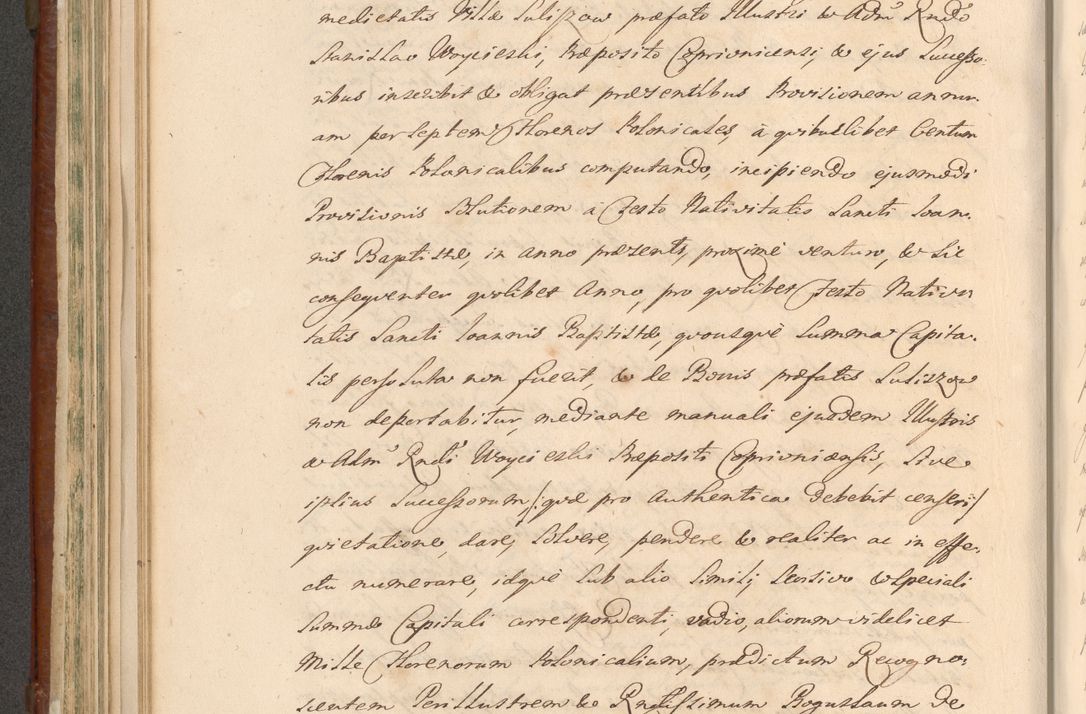 medietatis Villæ Sulisżow præfato Illustri & Adm̃ Rndo
Stanislao Woycieski, Præposito Coprivnicensi, & ejus Successo-
ribus inscribit & obligat præsentibus Provisionem annu-
am per Septem Florenos Polonicales, à quibuslibet Centum
Florenis Polonicalibus computando, incipiendo ejusmodi
Provisionis Solutionem à Festo Nativitatis Sancti Joan-
nis Baptistæ, in anno præsenti, proximè venturo, & sic
consequenter quolibet Anno, pro quolibet Festo Nativi-
tatis Sancti Joannis Baptistæ, quousquè Summa Capita-
lis persoluta non fuerit, & de Bonis præfatis Sulisżow
non deportabitur, mediante manuali ejusdem Illustris
& Adm̃ Rndi Woycieski Præpositi Coprivniensis, sive
ipsius Successorum /: quæ pro Authentica debebit censeri :/
quietatione, dare, solvere, pendere & realiter ac in effe-
ctu numerare, idquè sub alio simili, censivo & speciali
Summæ Capitali correspondenti, vadio, aliorum videlicet
Mille Florenorum Polonicalium, prædictum Recogno-
scentem Perillustrem & Rndissimum Boguslaum de